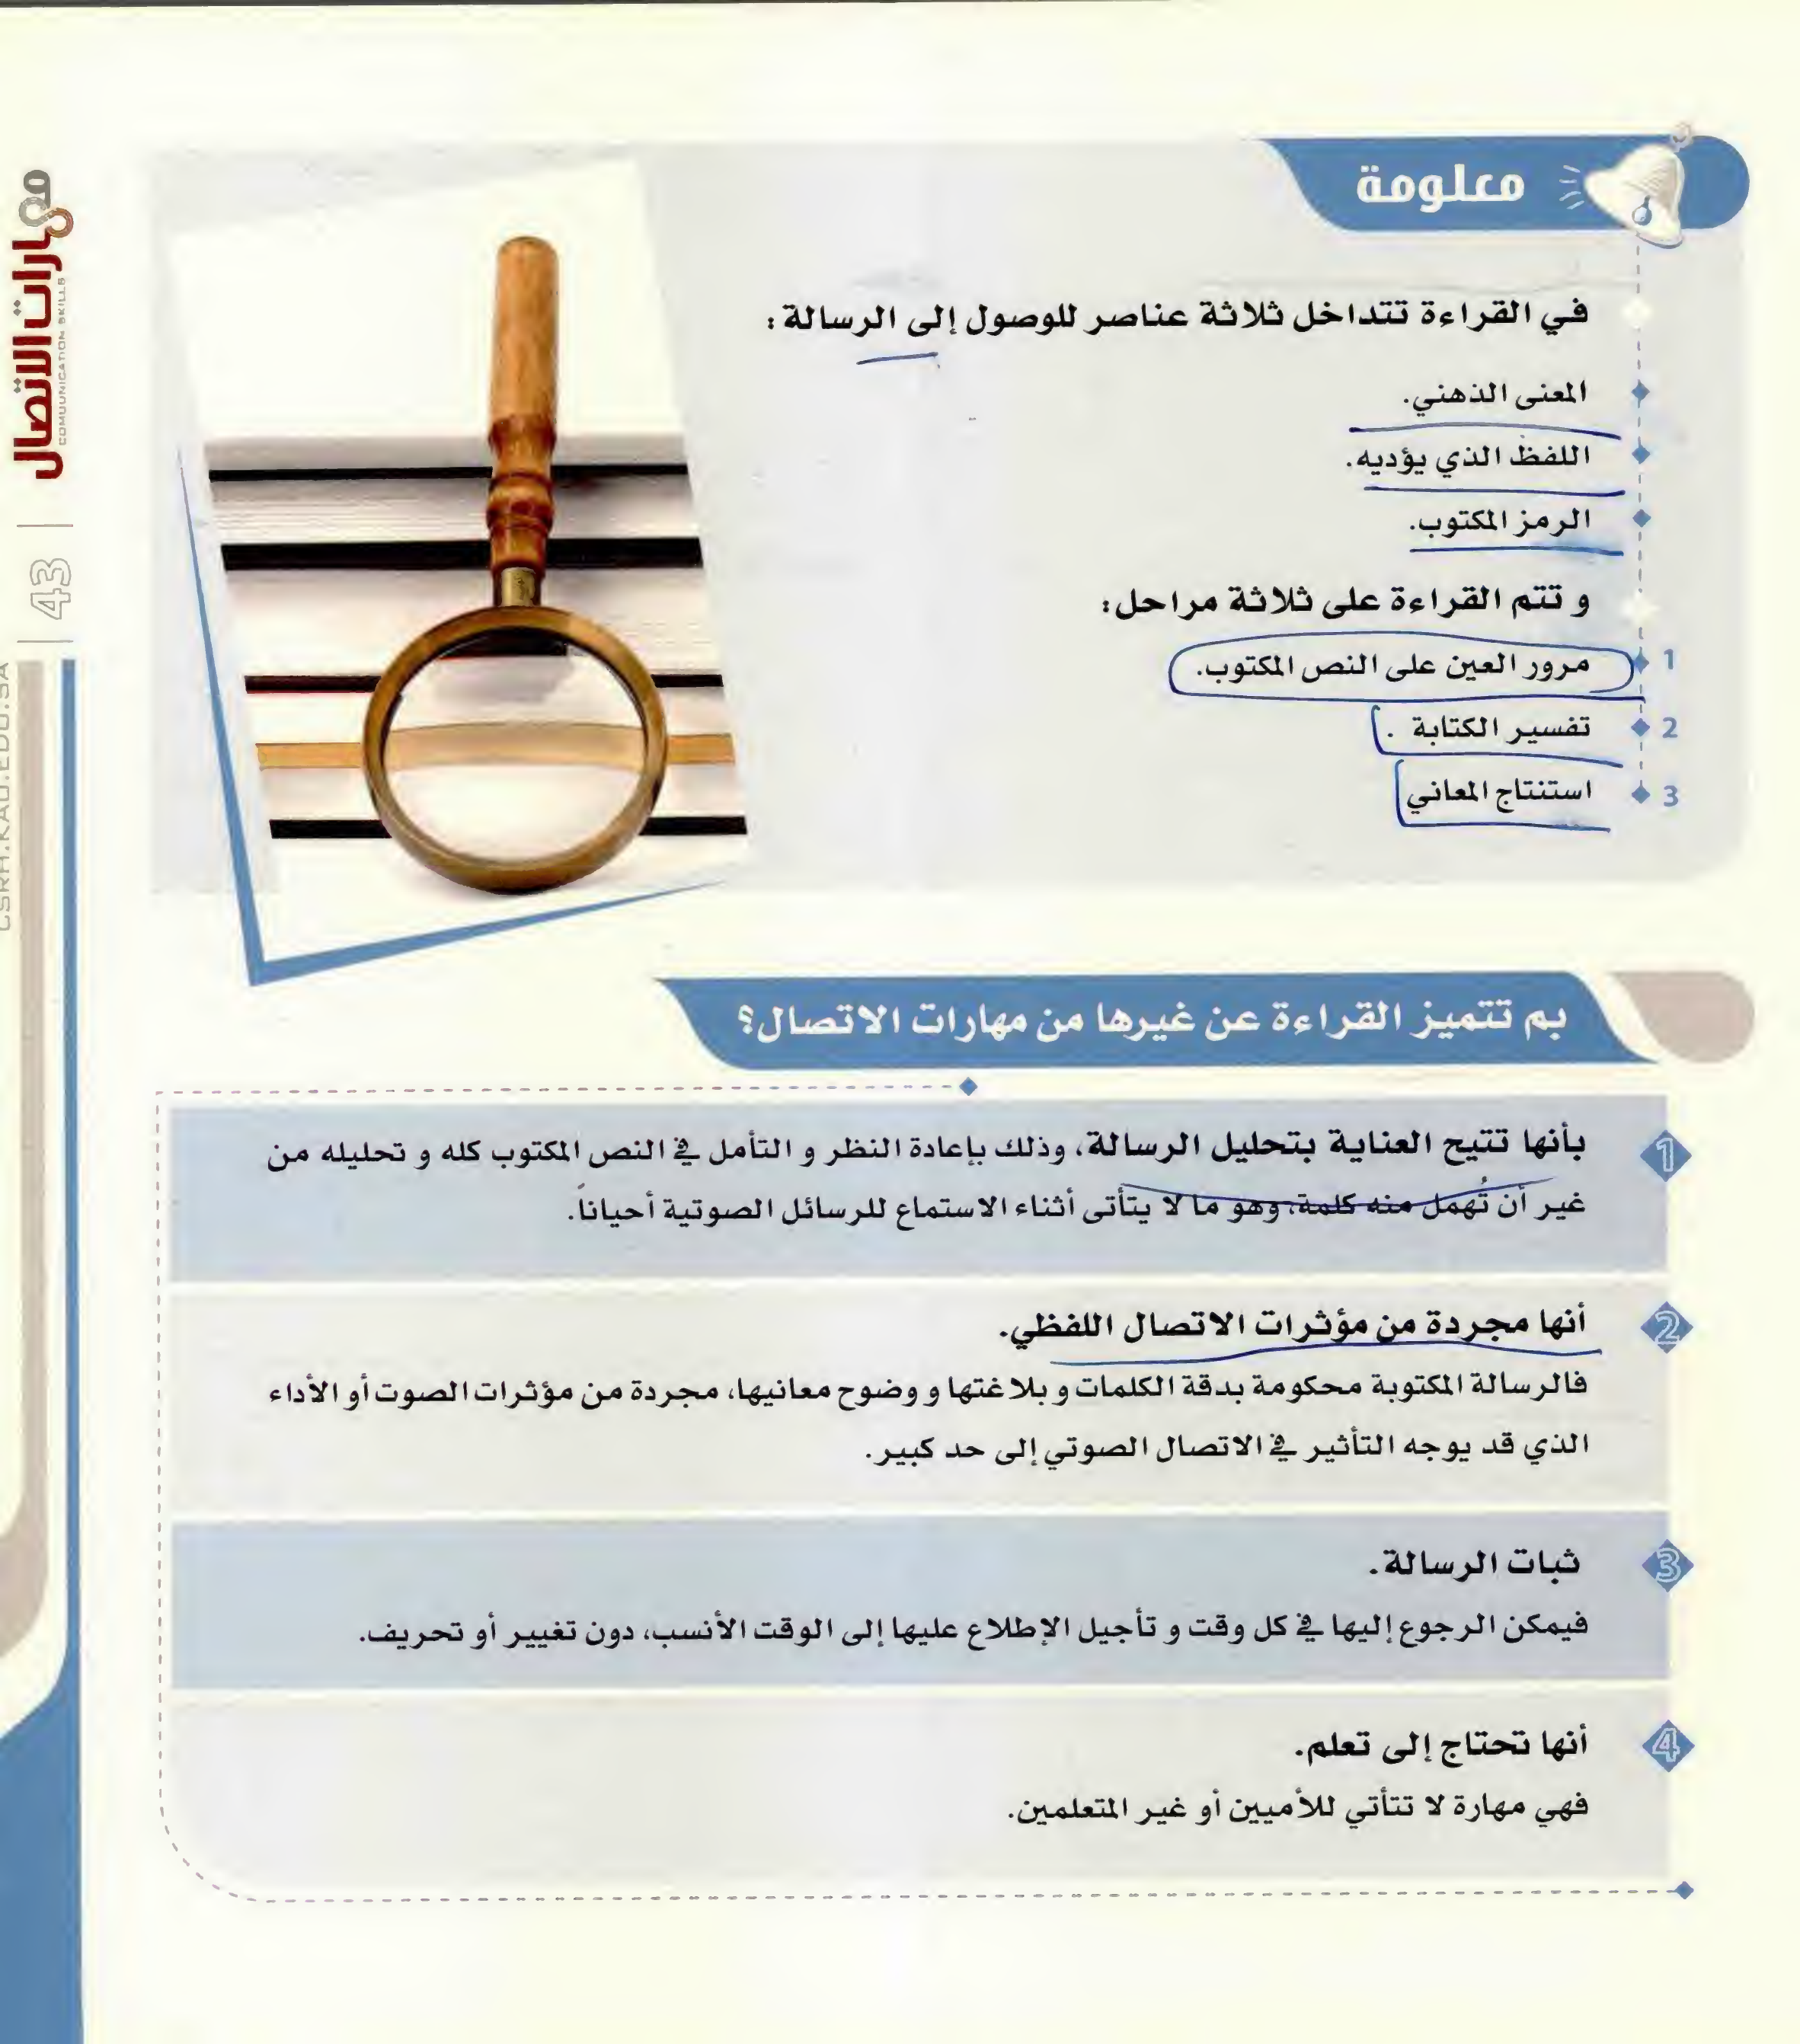 معلومة
في القراءة تتداخل ثلاثة عناصر للوصول إلى الرسالة :
المعنى الذهني.
اللفظ الذي يؤديه.
الرمز المكتوب.
و تتم القراءة على ثلاثة مراحل:
1 مرور العين على النص المكتوب.
2 تفسير الكتابة .
3 استنتاج المعاني
بم تتميز القراءة عن غيرها من مهارات الاتصال؟
1 بأنها تتيح العناية بتحليل الرسالة، وذلك بإعادة النظر و التأمل في النص المكتوب كله و تحليله من
غير أن تُهمل منه كلمة، وهو ما لا يتأتى أثناء الاستماع للرسائل الصوتية أحياناً.
2 أنها مجردة من مؤثرات الاتصال اللفظي.
فالرسالة المكتوبة محكومة بدقة الكلمات و بلاغتها و وضوح معانيها، مجردة من مؤثرات الصوت أو الأداء
الذي قد يوجه التأثير في الاتصال الصوتي إلى حد كبير.
3 ثبات الرسالة.
فيمكن الرجوع إليها في كل وقت و تأجيل الإطلاع عليها إلى الوقت الأنسب، دون تغيير أو تحريف.
4 أنها تحتاج إلى تعلم.
فهي مهارة لا تتأتي للأميين أو غير المتعلمين.
مهارات الاتصال
COMUUNICATION SKILLS
43
CSRH.KAU.EDU.SA